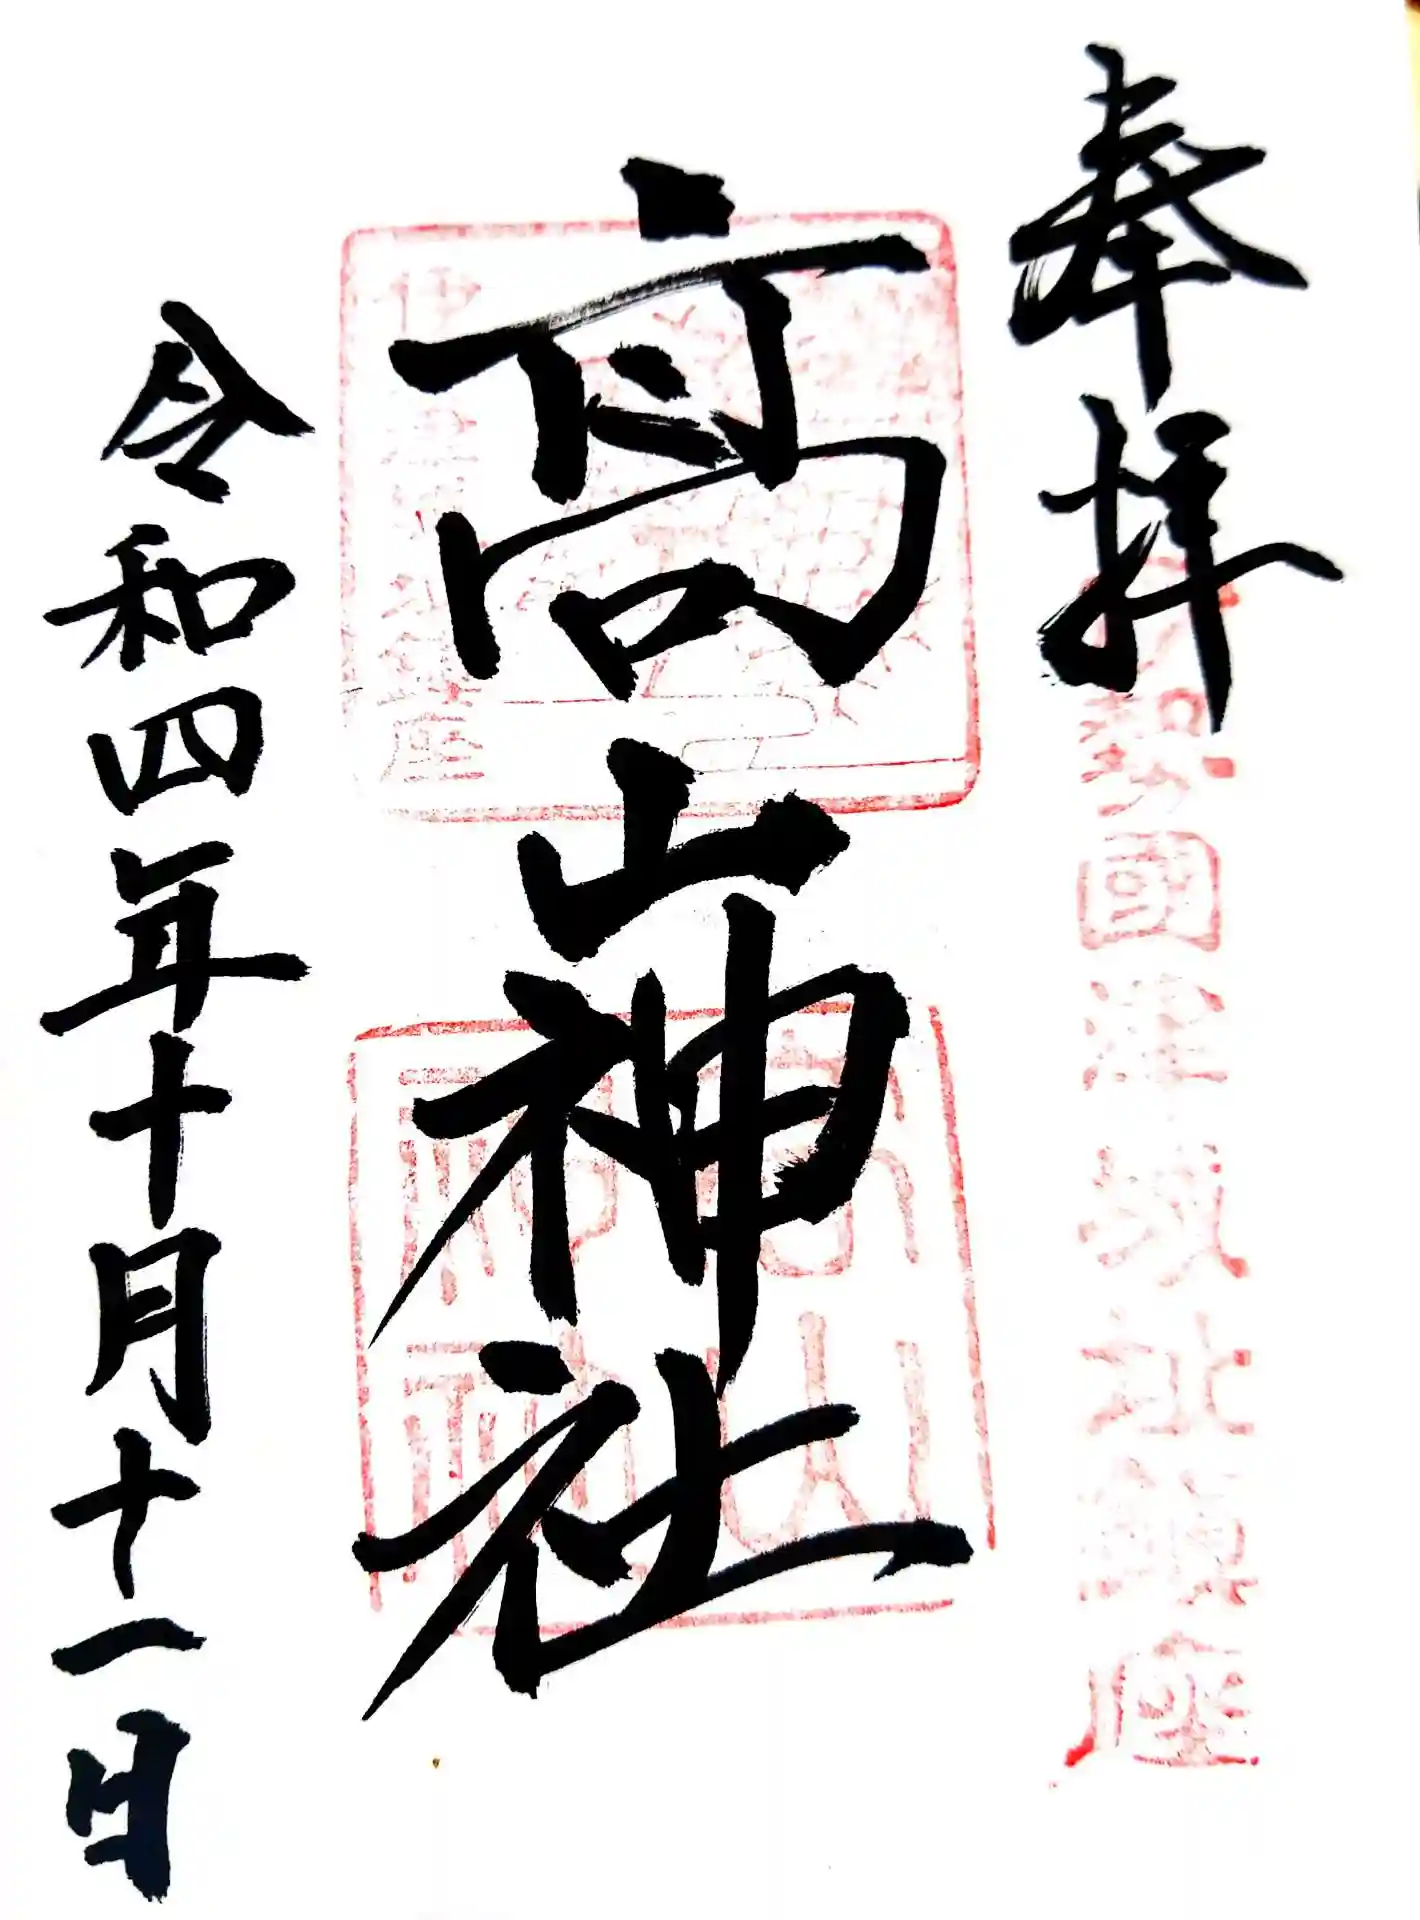 奉拝
勢國津城址鎮座
高山神社
高山神社
令和四年十月十一日